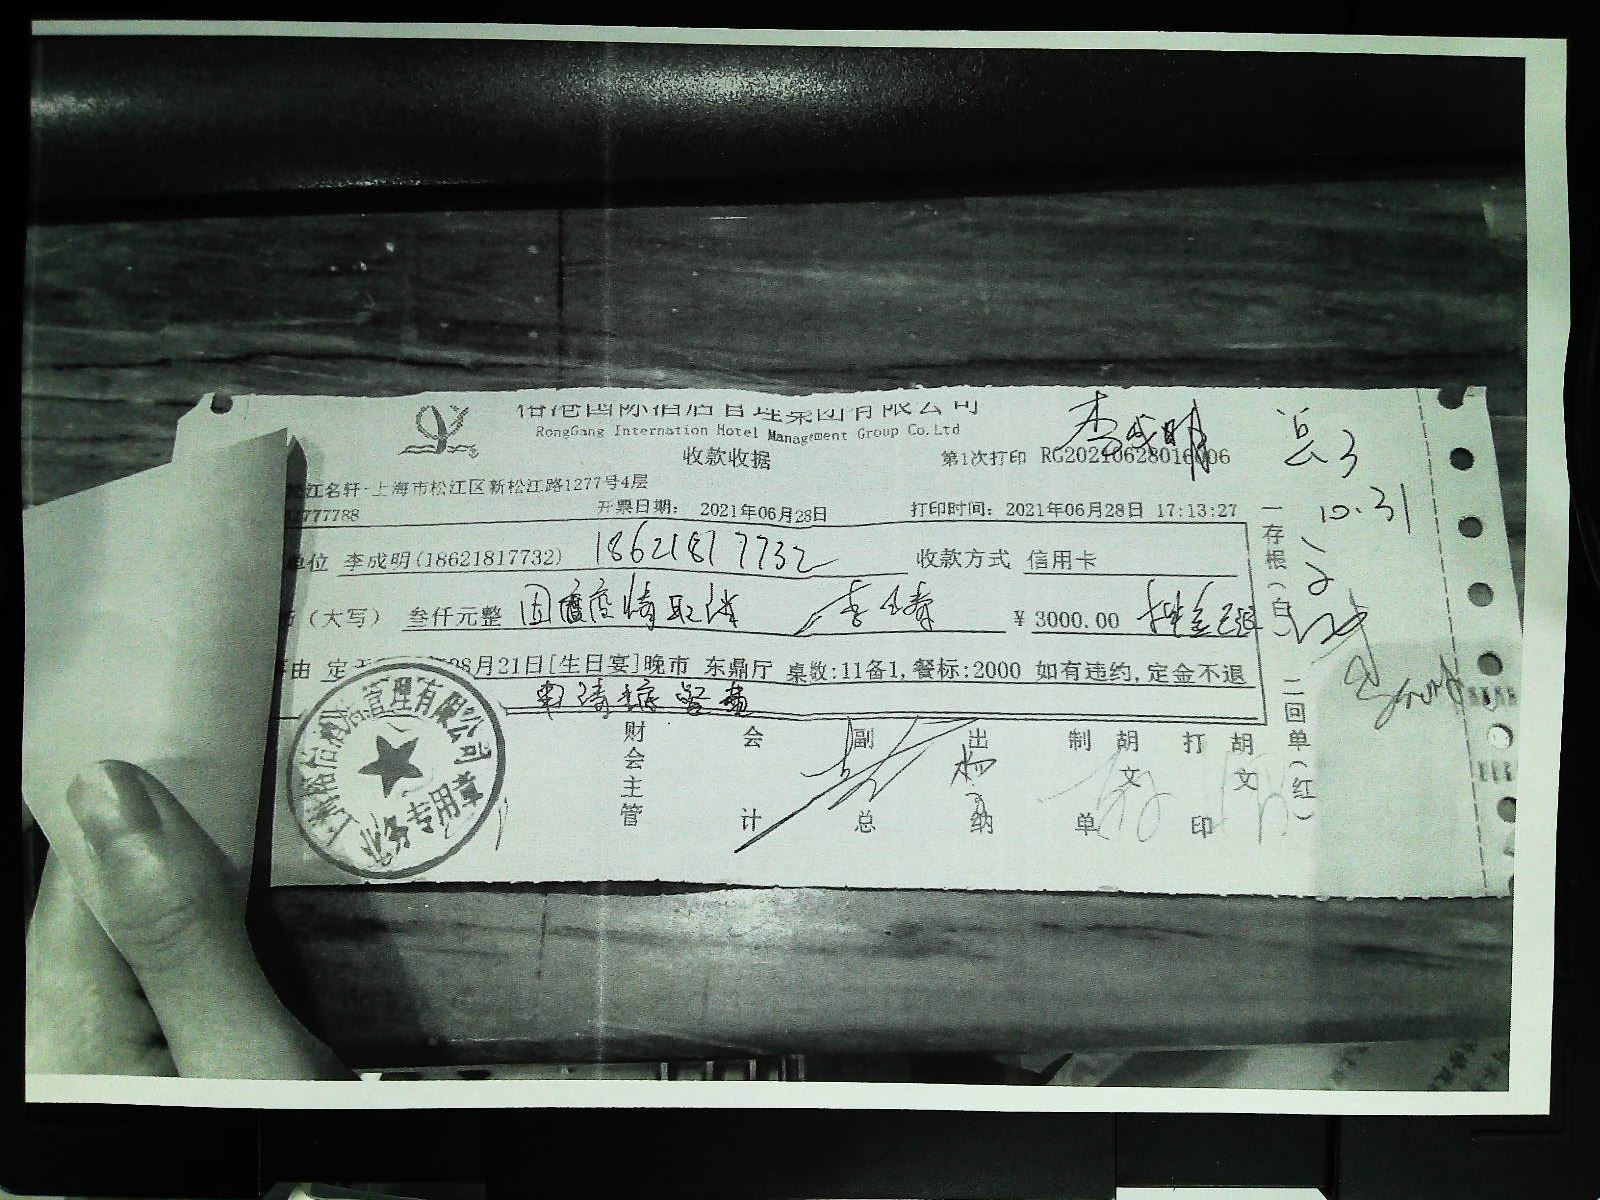 裕港国际酒店管理集团有限公司
RongGang Internation Hotel Management Group Co.Ltd
李成明
收款收据
第1次打印 RG20210628016006
松江名轩-上海市松江区新松江路1277号4层
777788
开票日期: 2021年06月28日
打印时间: 2021年06月28日 17:13:27
10.31
单位 李成明(18621817732) 18621817732 收款方式 信用卡
(大写) 叁仟元整 因疫情取消 ¥3000.00 押金已退
由 定 08月21日[生日宴]晚市 东鼎厅 桌数:11备1,餐标:2000 如有违约,定金不退
申请
一存根(白) 二回单(红)
财会主管 会计 副总 出纳 制单 胡文 打印 胡文
管理有限公司
业务专用章